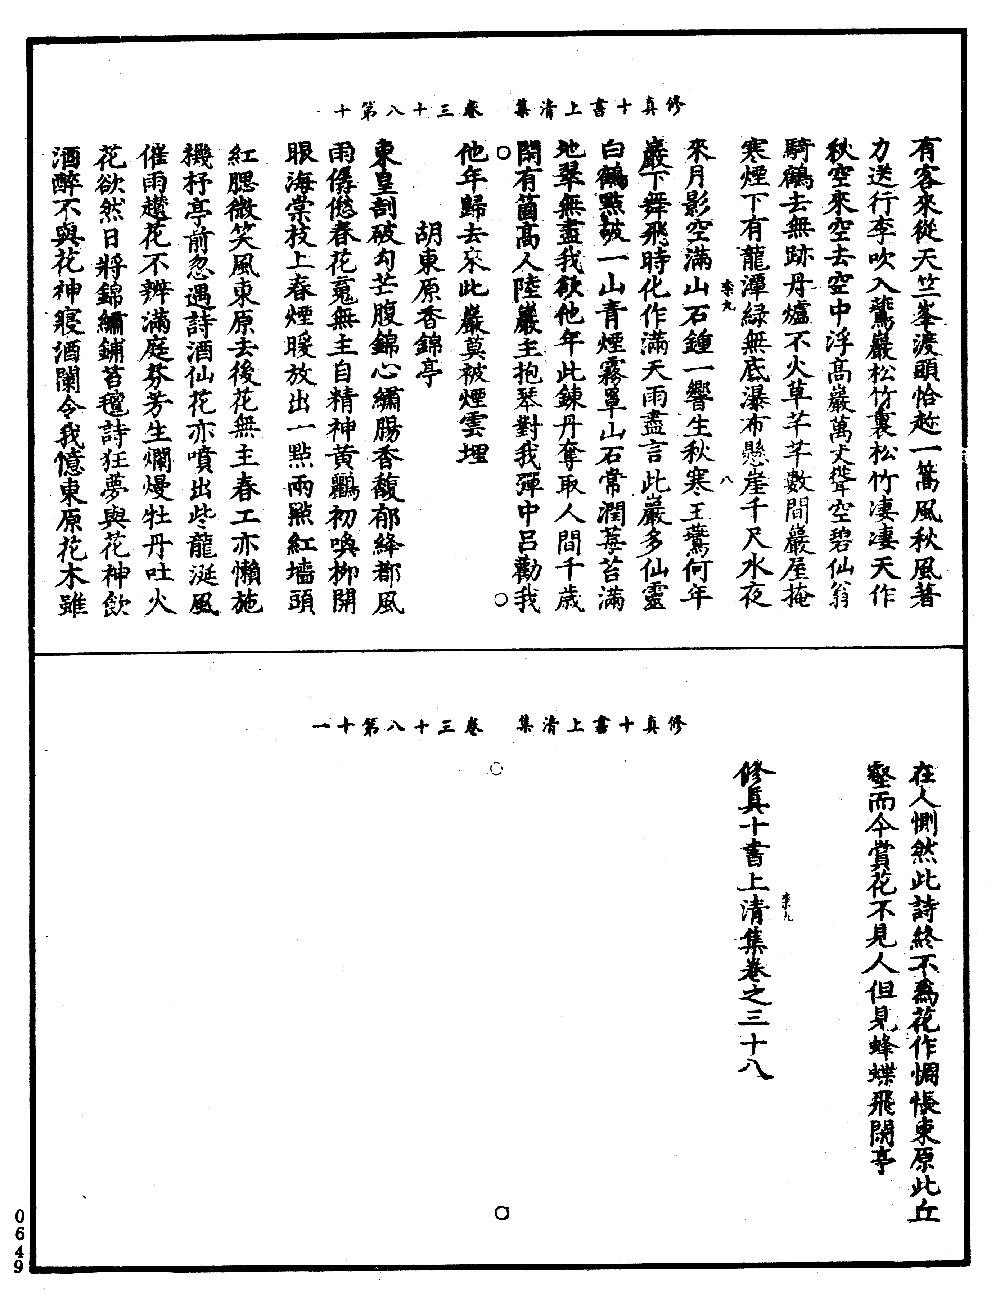 修真十書上清集　卷三十八第十
有客來從天竺峯渡頭恰趂一篙風秋風著
力送行李吹入鵞巖松竹裏松竹凄凄天作
秋空來空去空中浮高巖萬丈聳空碧仙翁
騎鶴去無跡丹爐不火草芊芊數間巖屋掩
寒煙下有龍潭緑無底瀑布懸崖千尺水夜
李九　八
來月影空滿山石鍾一響生秋寒王鵞何年
巖下舞飛時化作滿天雨盡言此巖多仙靈
白鶴點破一山青煙霧罩山石常潤莓苔滿
地翠無盡我欲他年此鍊丹奪取人間千歲
閑有箇高人陸巖主抱琴對我彈中呂勸我
他年歸去來此巖莫被煙雲埋
胡東原香錦亭
東皇剖破勾芒腹錦心繡腸香馥郁絳都風
雨僝僽春花䰟無主自精神黄鸝初喚柳開
眼海棠枝上春煙暖放出一點兩點紅墻頭
紅腮微笑風東原去後花無主春工亦懶施
機杼亭前忽遇詩酒仙花亦噴出些龍涎風
催雨趲花不辨滿庭芬芳生爛熳牡丹吐火
花欲然日將錦繡鋪苔氊詩狂夢與花神飲
酒醉不與花神寢酒闌令我憶東原花木雖
修真十書上清集　卷三十八第十一
在人惻然此詩終不爲花作惆悵東原此丘
壑而今賞花不見人但見蜂蝶飛閑亭
李九
修真十書上清集卷之三十八
0649